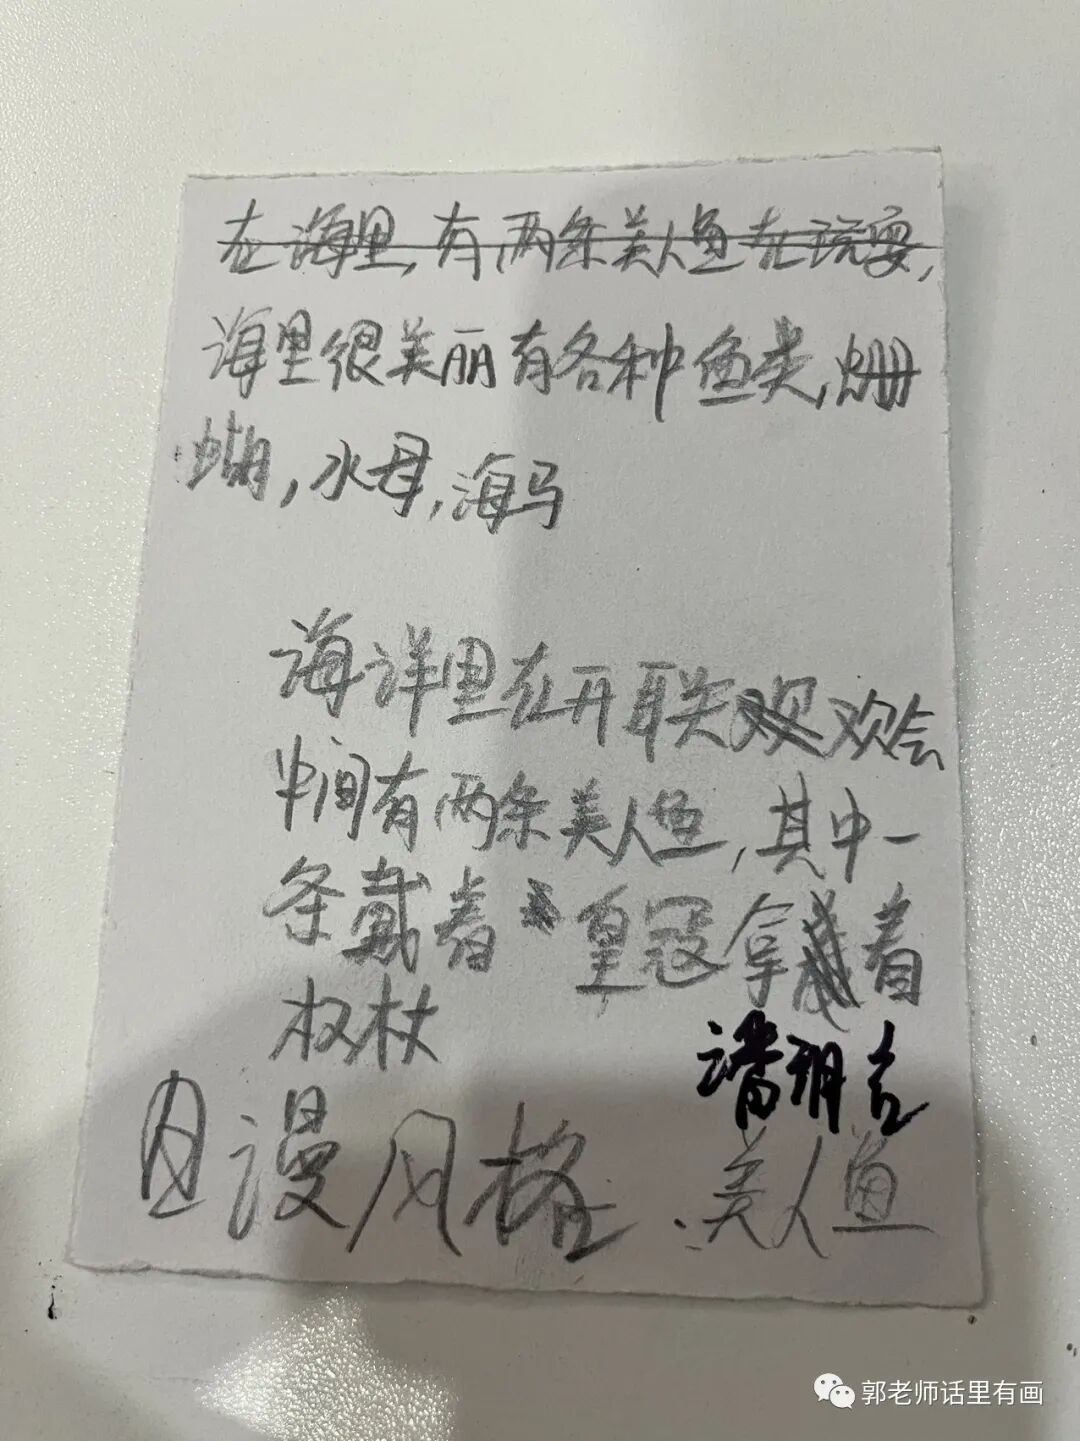 在海里,有两条美人鱼在玩耍,
海里很美丽有各种鱼类,珊
瑚,水母,海马
海洋里在开联欢会
中间有两条美人鱼,其中一
条戴着皇冠拿着
权杖
潘玥言
日漫风格
美人鱼
郭老师话里有画